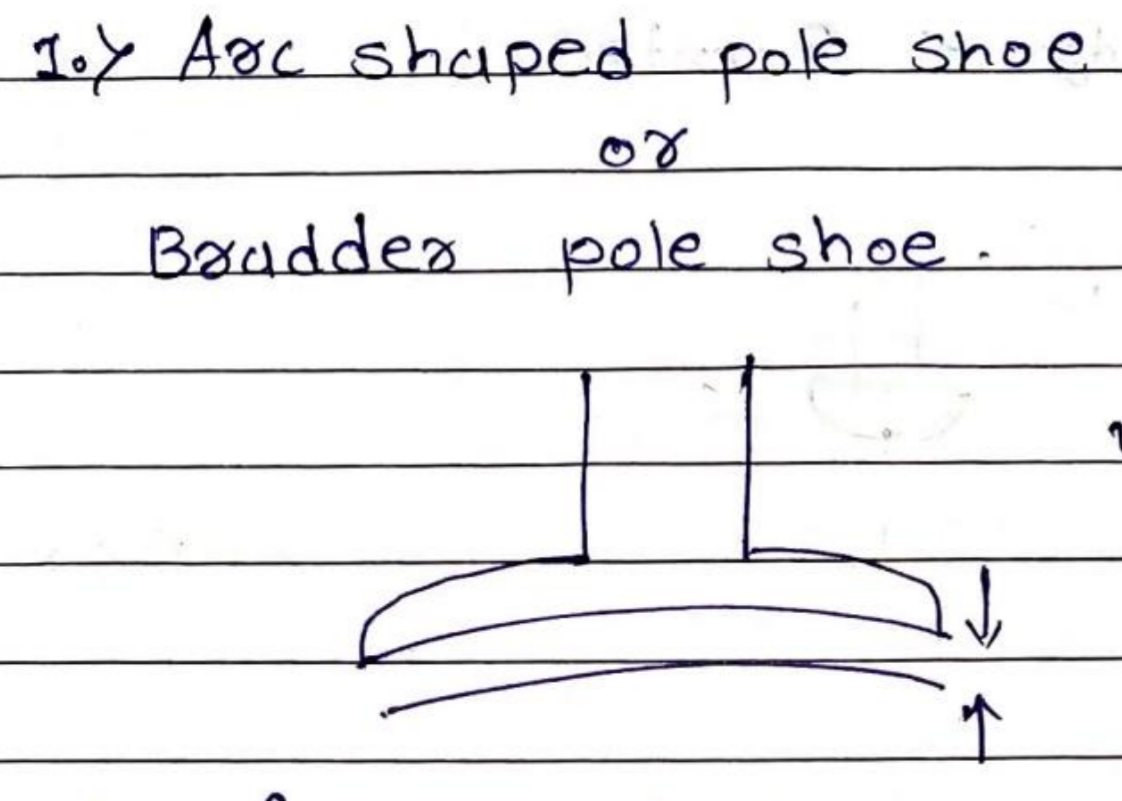 1.> Arc shaped pole shoe
or
Bradder pole shoe.